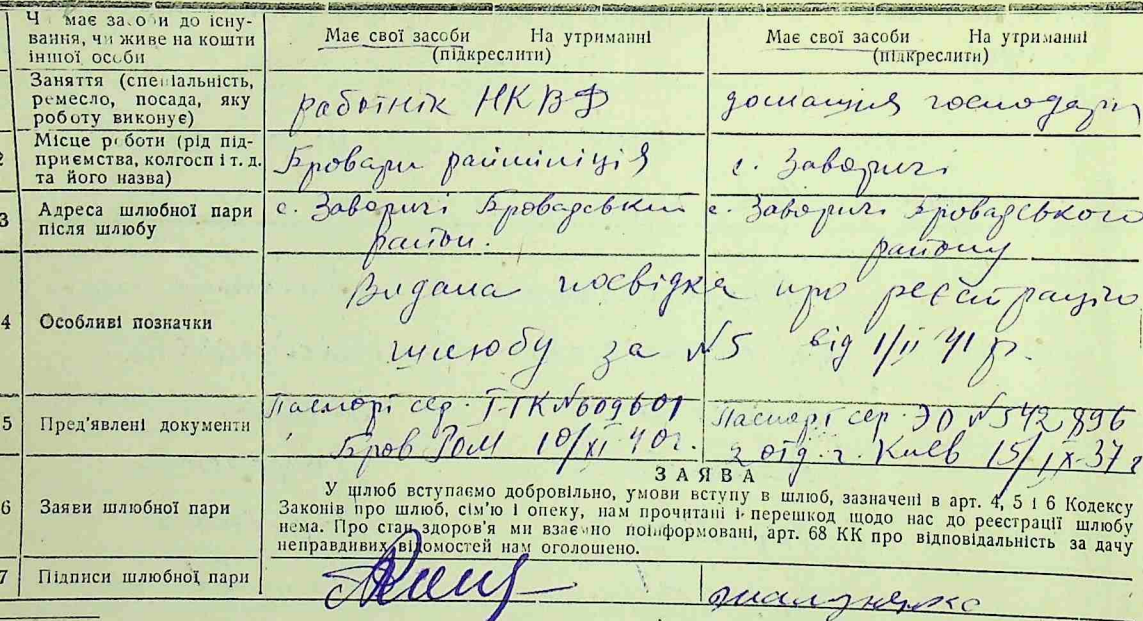 Чи має засоби до існу-
вання, чи живе на кошти
іншої особи
Має свої засоби На утриманні
(підкреслити)
Має свої засоби На утриманні
(підкреслити)
Заняття (спеціальність,
ремесло, посада, яку
роботу виконує)
работнік НКВД
домашня господарк
2 Місце роботи (рід під-
приємства, колгосп і т. д.
та його назва)
Бровари райміліція
с. Заворичі
3 Адреса шлюбної пари
після шлюбу
с. Заворичі Броварський
район.
с. Заворичі Броварського
району
4 Особливі позначки
Видана посвідка про реєстрацію
шлюбу за №5 від 1/II 41 р.
5 Пред'явлені документи
Паспорт сер. ТГК №609601
Бров РОМ 10/XI 40 г.
Паспорт сер. ЭО №542896
2 отд. г. Киев 15/IX-37 г
ЗАЯВА
6 Заяви шлюбної пари
У шлюб вступаємо добровільно, умови вступу в шлюб, зазначені в арт. 4, 5 і 6 Кодексу
Законів про шлюб, сім'ю і опеку, нам прочитані і перешкод щодо нас до реєстрації шлюбу
нема. Про стан здоров'я ми взаємно поінформовані, арт. 68 КК про відповідальність за дачу
неправдивих відомостей нам оголошено.
7 Підписи шлюбної пари